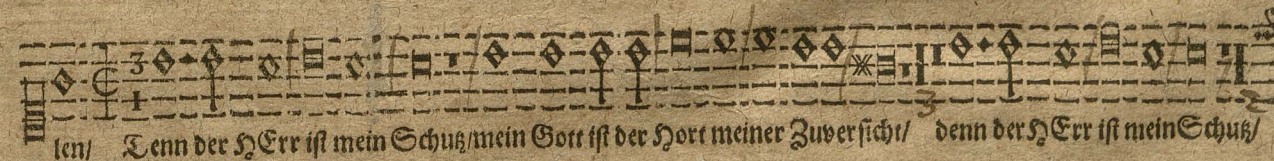 len/ Denn der HErr ist mein Schutz/mein Gott ist der Hort meiner Zuversicht/ denn der HErr ist mein Schutz/